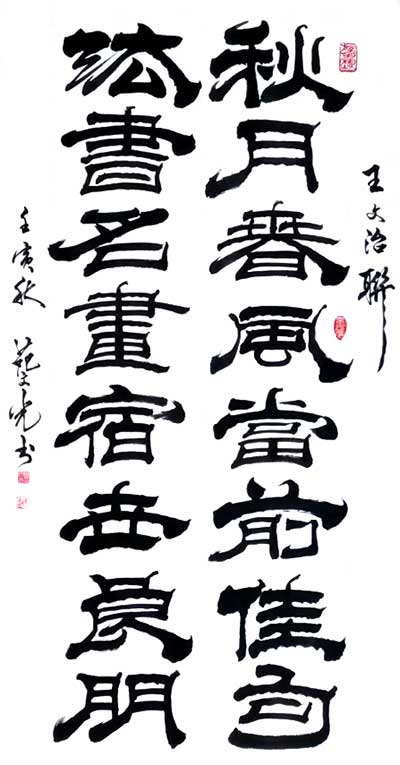 王文治聯
秋月春風當前佳句
法書名畫宿世良朋
壬寅秋 范光书